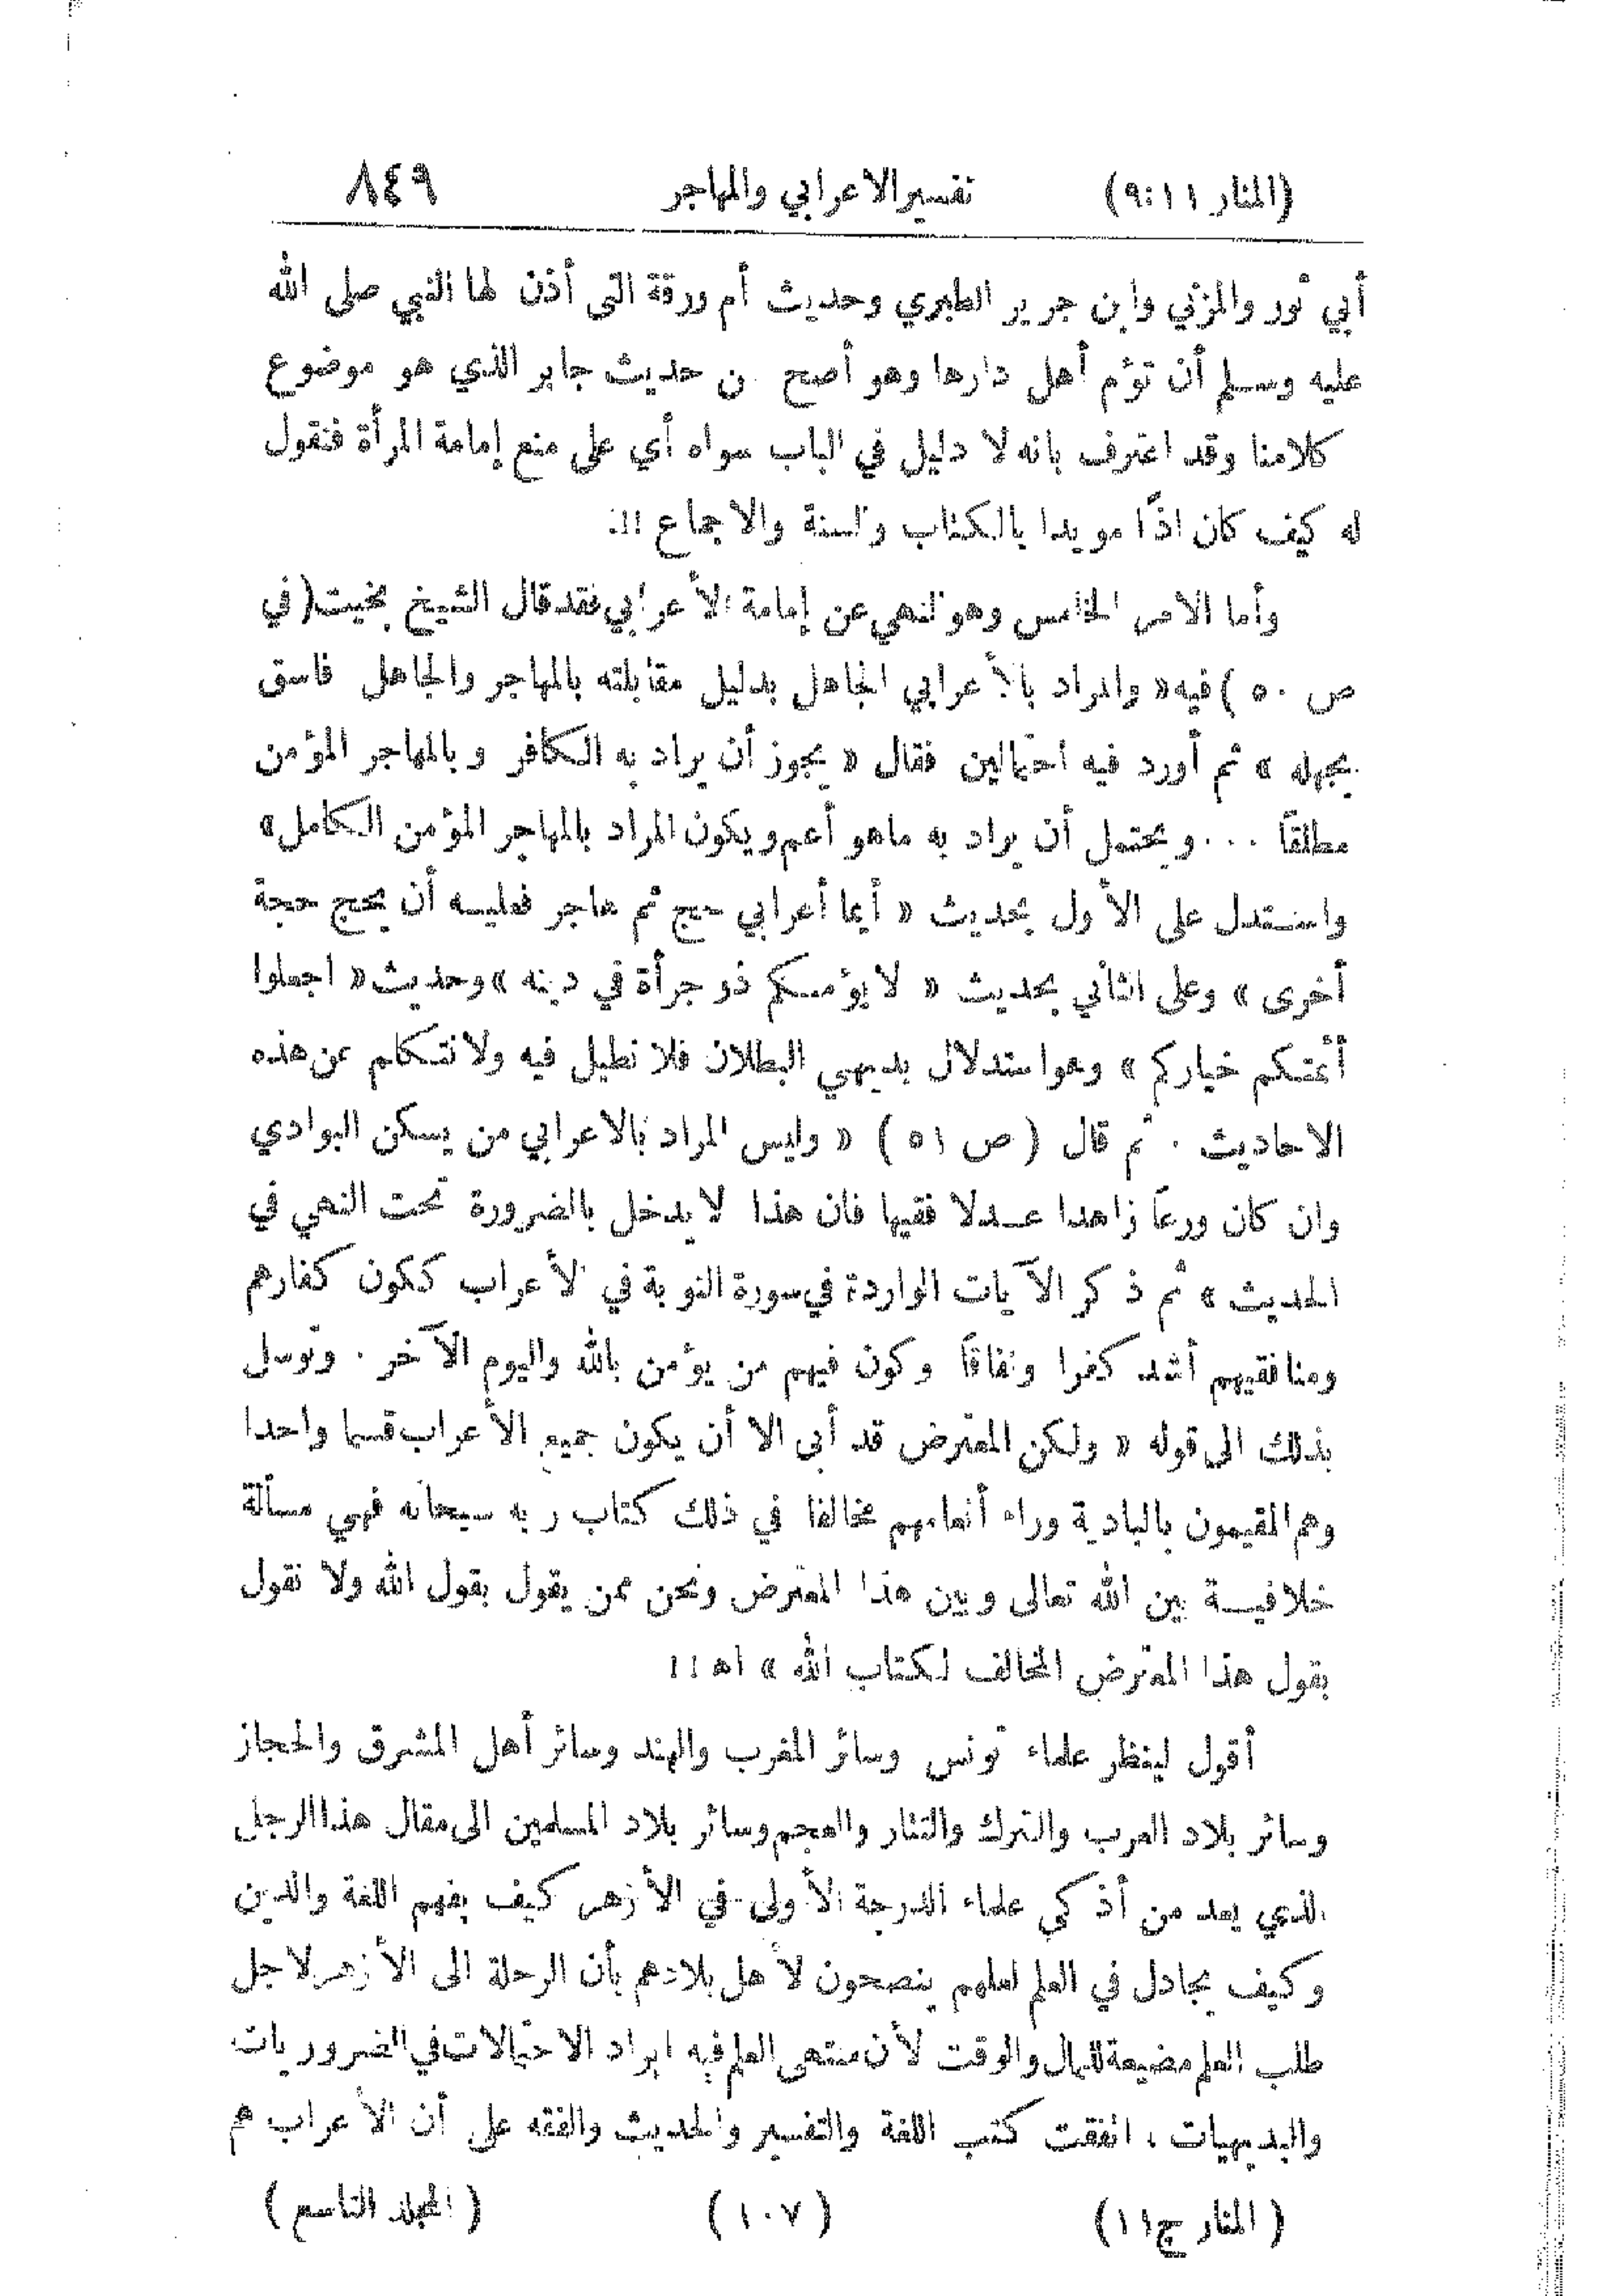 (المنار ١١:٩) تفسير الاعرابي والمهاجر ٨٤٩
أبي ثور والمزني وابن جرير الطبري وحديث أم ورقة التى أذن لها النبي صلى الله
عليه وسلم أن تؤم أهل دارها وهو أصح من حديث جابر الذي هو موضوع
كلامنا وقد اعترف بانه لا دليل في الباب سواه أي على منع إمامة المرأة فنقول
له كيف كان اذًا مويدا بالكتاب والسنة والاجماع !!.
وأما الامر الخامس وهو النهي عن إمامة الأعرابي فقد قال الشيخ بخيت (في
ص ٥٠ ) فيه « والمراد بالأعرابي الجاهل بدليل مقابلته بالمهاجر والجاهل فاسق
بجهله » ثم أورد فيه احتمالين فقال « يجوز أن يراد به الكافر وبالمهاجر المؤمن
مطلقاً ... ويحتمل أن يراد به ماهو أعم ويكون المراد بالمهاجر المؤمن الكامل »
واستدل على الأول بحديث « أيما أعرابي حج ثم هاجر فعليه أن يحج حجة
أخرى » وعلى الثاني بحديث « لا يؤمنكم ذو جرأة في دينه » وحديث « اجعلوا
أئمتكم خياركم » وهو استدلال بديهي البطلان فلا نطيل فيه ولا نتكلم عن هذه
الاحاديث . ثم قال ( ص ٥١ ) « وليس المراد بالاعرابي من يسكن البوادي
وان كان ورعاً زاهدا عدلا فقيها فان هذا لا يدخل بالضرورة تحت النهي في
الحديث » ثم ذكر الآيات الواردة في سورة التوبة في الأعراب ككون كفارهم
ومنافقيهم أشد كفرا ونفاقاً وكون فيهم من يؤمن بالله واليوم الآخر . وتوسل
بذلك الى قوله « ولكن المعترض قد أبى الا أن يكون جميع الأعراب قسما واحدا
وهم المقيمون بالبادية وراء أنعامهم مخالفا في ذلك كتاب ربه سبحانه فهي مسألة
خلافية بين الله تعالى وبين هذا المعترض ونحن ممن يقول بقول الله ولا نقول
بقول هذا المعترض المخالف لكتاب الله » اه !!
أقول لينظر علماء تونس وسائر المغرب والهند وسائر أهل المشرق والحجاز
وسائر بلاد العرب والترك والتتار والعجم وسائر بلاد المسلمين الى مقال هذا الرجل
الذي يعد من أذكى علماء الدرجة الأولى في الأزهر كيف يفهم اللغة والدين
وكيف يجادل في العلم لعلهم ينصحون لأهل بلادهم بأن الرحلة الى الأزهر لاجل
طلب العلم مضيعة للمال والوقت لأن منتهى العلم فيه ايراد الاحتمالات في الضروريات
والبديهيات ، اتفقت كتب اللغة والتفسير والحديث والفقه على أن الأعراب هم
( المنار ج ١١) (١٠٧) ( المجلد التاسع )